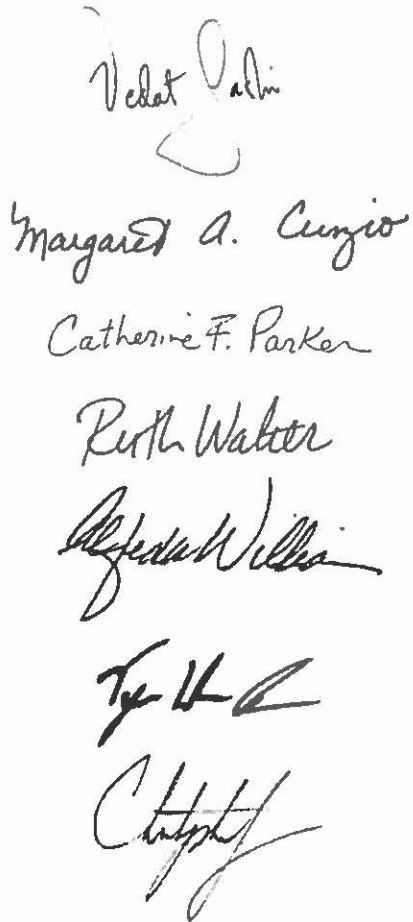 Vedat
Margaret A. Cunzio
Catherine F. Parker
Ruth Walter
Alfreda Willia
Christopher